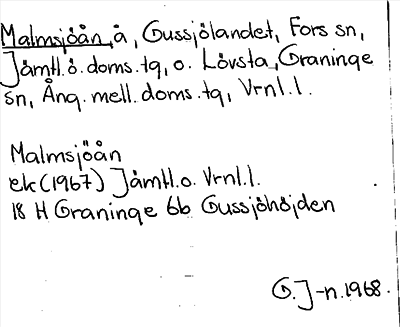 Malmsjöån, å, Gussjölandet, Fors sn,
Jämtl.ö.doms.tg, o. Lövsta, Graninge
sn, Ång. mell. doms.tg, Vrnl.l.
Malmsjöån
ek (1967) Jämtl.o. Vrnl.l.
18 H Graninge 6b Gussjöhöjden
G.J-n.1968.